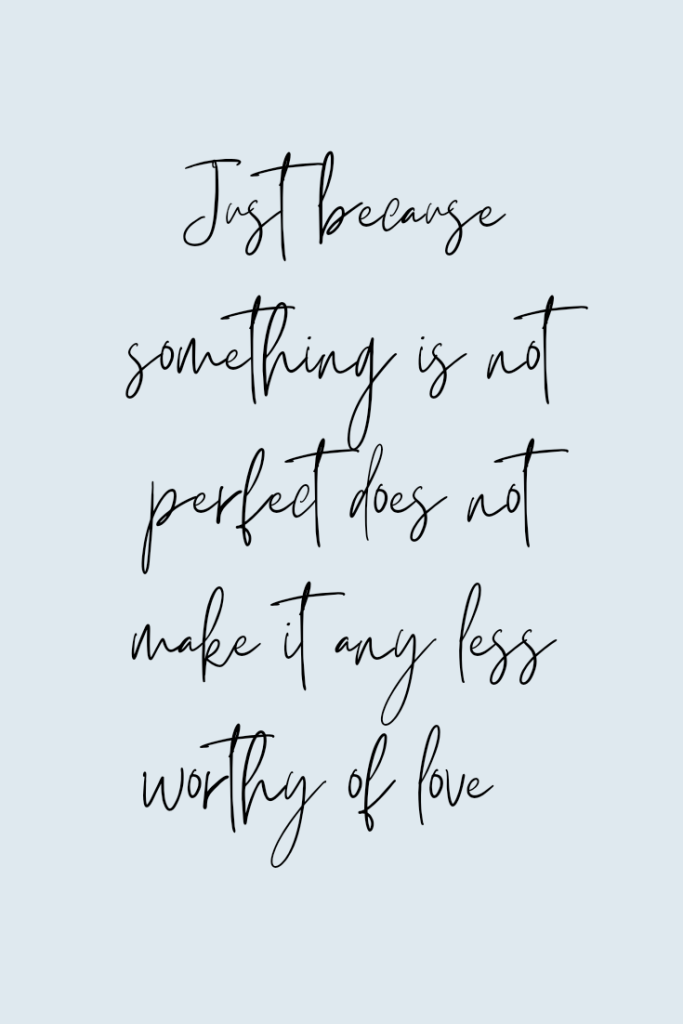 Just because
something is not
perfect does not
make it any less
worthy of love